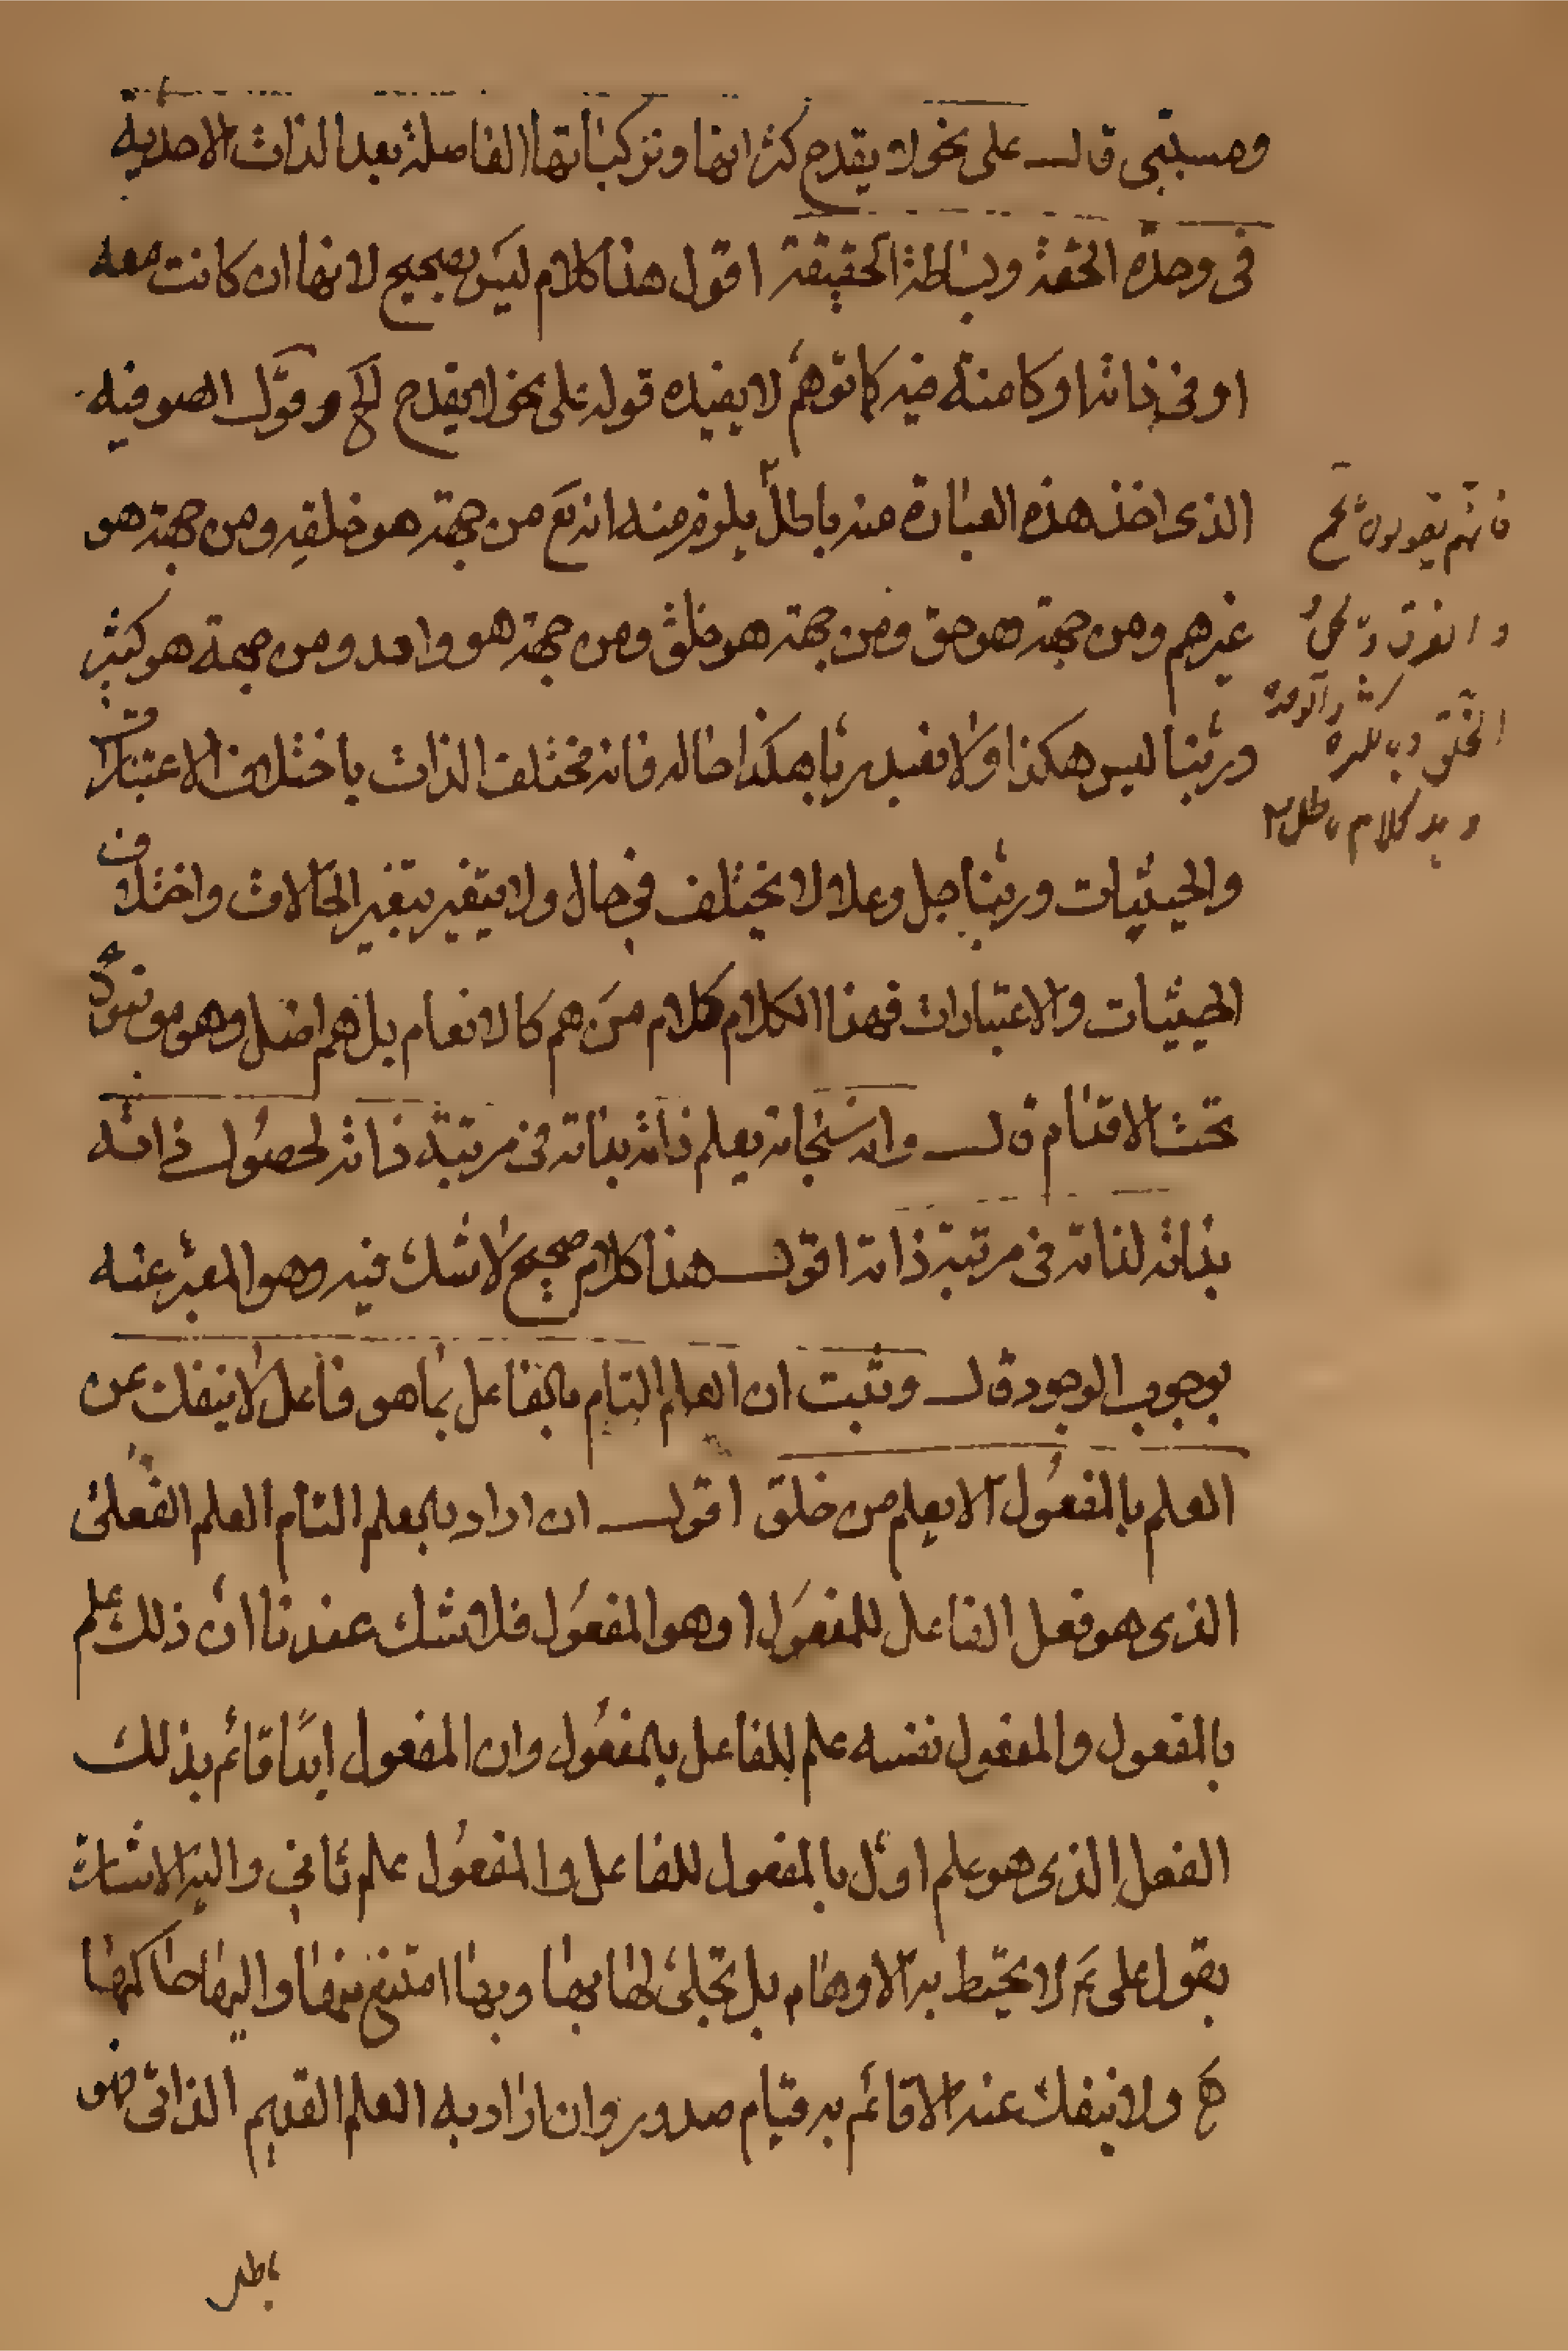 ومسببى قال على نحو لا يقدح كثراتها وتركباتها الفاصلة بعد الذات الاحدية
فى وحدة الحقة وبساطة الحقيقة اقول هذا كلام ليس بصحيح لانها ان كانت معه
او فى ذاته او كامنة فيه كما توهم لا يفيده قوله على نحو لا يقدح الخ وقول الصوفيه
الذى اخذ هذه العبارة منه باطل يلزم منه انه تع من جهة هو خلقه ومن جهة هو
غيرهم ومن جهة هو حق ومن جهة هو خلق ومن جهة هو واحد ومن جهة هو كثير
وربنا ليس هكذا ولا نعبد ربا هكذا حاله فانه مختلف الذات باختلاف الاعتبارات
والحيثيات وربنا جل وعلا لا يختلف فى حال ولا يتغير بتغير الحالات واختلاف
الحيثيات والاعتبارات فهذا الكلام كلام من هم كالانعام بل هم اضل وهو مو نعوذ
تحت الاقدام قال وانه سبحانه يعلم ذاته بذاته فى مرتبة ذاته لحصول ذاته
بذاته لذاته فى مرتبة ذاته اقول هذا كلام صحيح لا شك فيه وهو المعبر عنه
بوجوب الوجود قال وثبت ان العلم التام بالفاعل بما هو فاعل لا ينفك عن
العلم بالمفعول الا يعلم من خلق اقول ان اراد بالعلم التام العلم الفعلى
الذى هو فعل الفاعل للمفعول او هو المفعول فلا شك عندنا ان ذلك علم
بالمفعول والمفعول نفسه علم للفاعل بالمفعول وان المفعول ابدا قائم بذلك
الفعل الذى هو علم اول بالمفعول للفاعل والمفعول علم ثانى واليه الاشارة
بقول على ع لا يحيط به الاوهام بل تجلى لها بها وبها امتنع منها واليها حاكمها
ح ولا ينفك عنه لا قائم به قيام صدور وان اراد به العلم القديم الذاتى فهو
فانهم يقولون
الخلق
كلام باطل
باطل